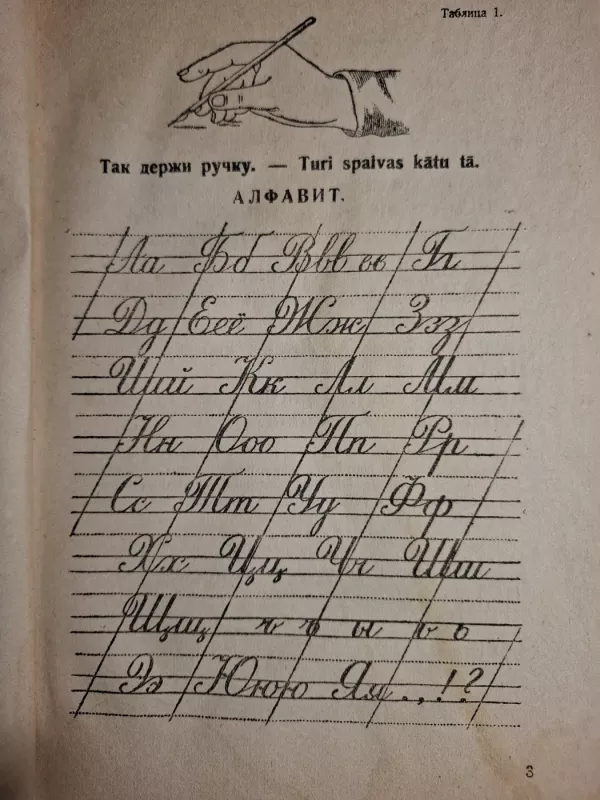 Таблица 1.
Так держи ручку. — Turi spalvas kātu tā.
АЛФАВИТ.
Аа Бб Ввв вв Гг
Дд Ееё Жж Ззз
Иий Кк Лл Мм
Нн Ооо Пп Рр
Сс Тт Уу Фф
Хх Цц Чч Шш
Щщ ъ ъ ы ь ь
Ээ Ююю Яя . , ! ?
3